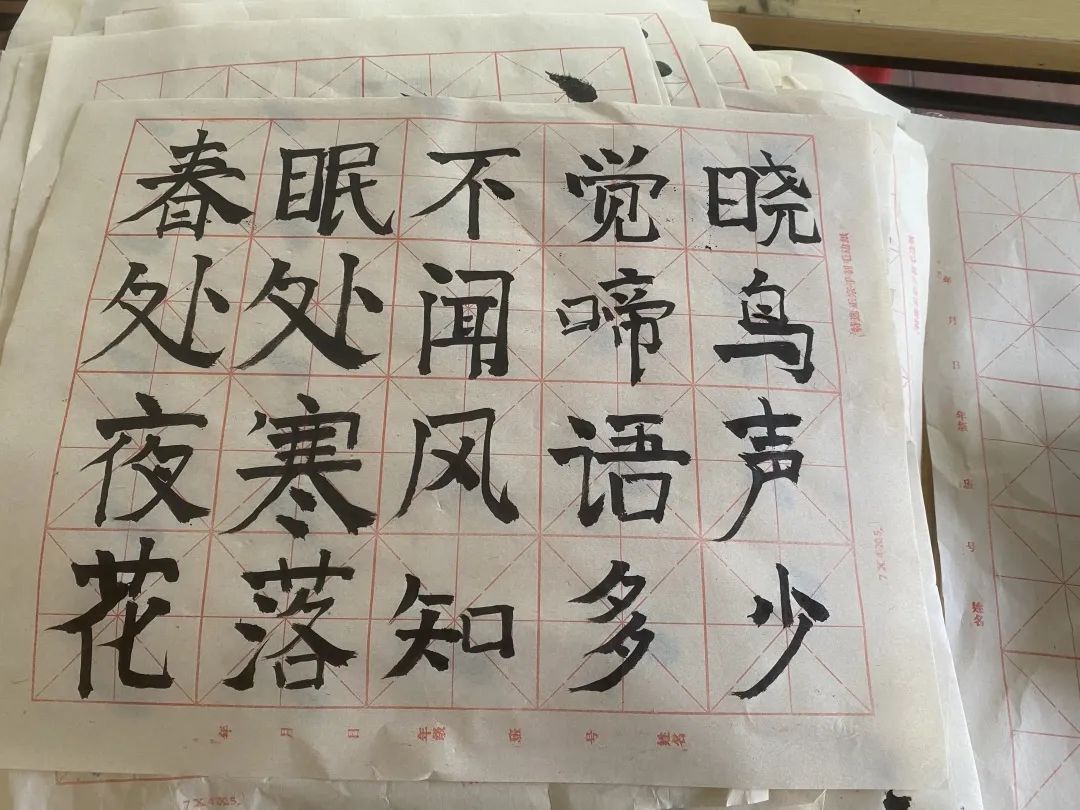 春眠不觉晓
处处闻啼鸟
夜寒风语声
花落知多少
年 月 日 年级 班 号 姓名
7×4 20.5
7×4 20.5
年 月 日 年级 班 号 姓名